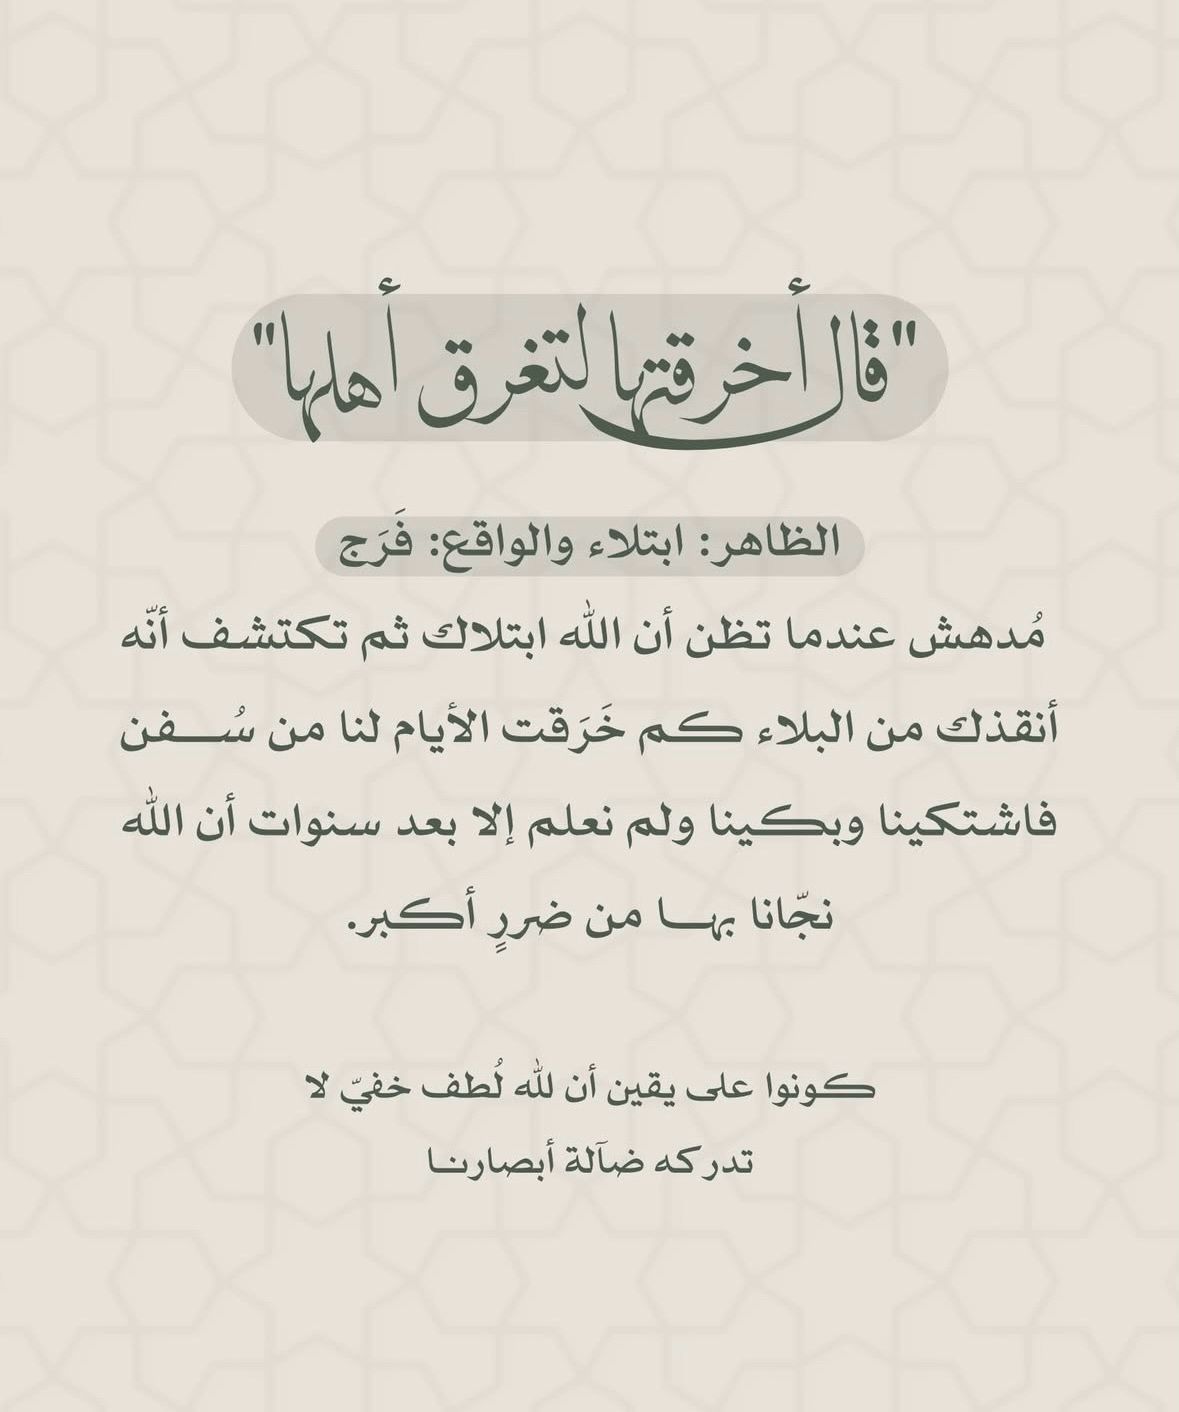 "قال أخرقتها لتغرق أهلها"
الظاهر: ابتلاء والواقع: فَرَج
مُدهش عندما تظن أن الله ابتلاك ثم تكتشف أنّه
أنقذك من البلاء كم خَرَقت الأيام لنا من سُفن
فاشتكينا وبكينا ولم نعلم إلا بعد سنوات أن الله
نجّانا بها من ضررٍ أكبر.
كونوا على يقين أن لله لُطف خفيّ لا
تدركه ضآلة أبصارنا